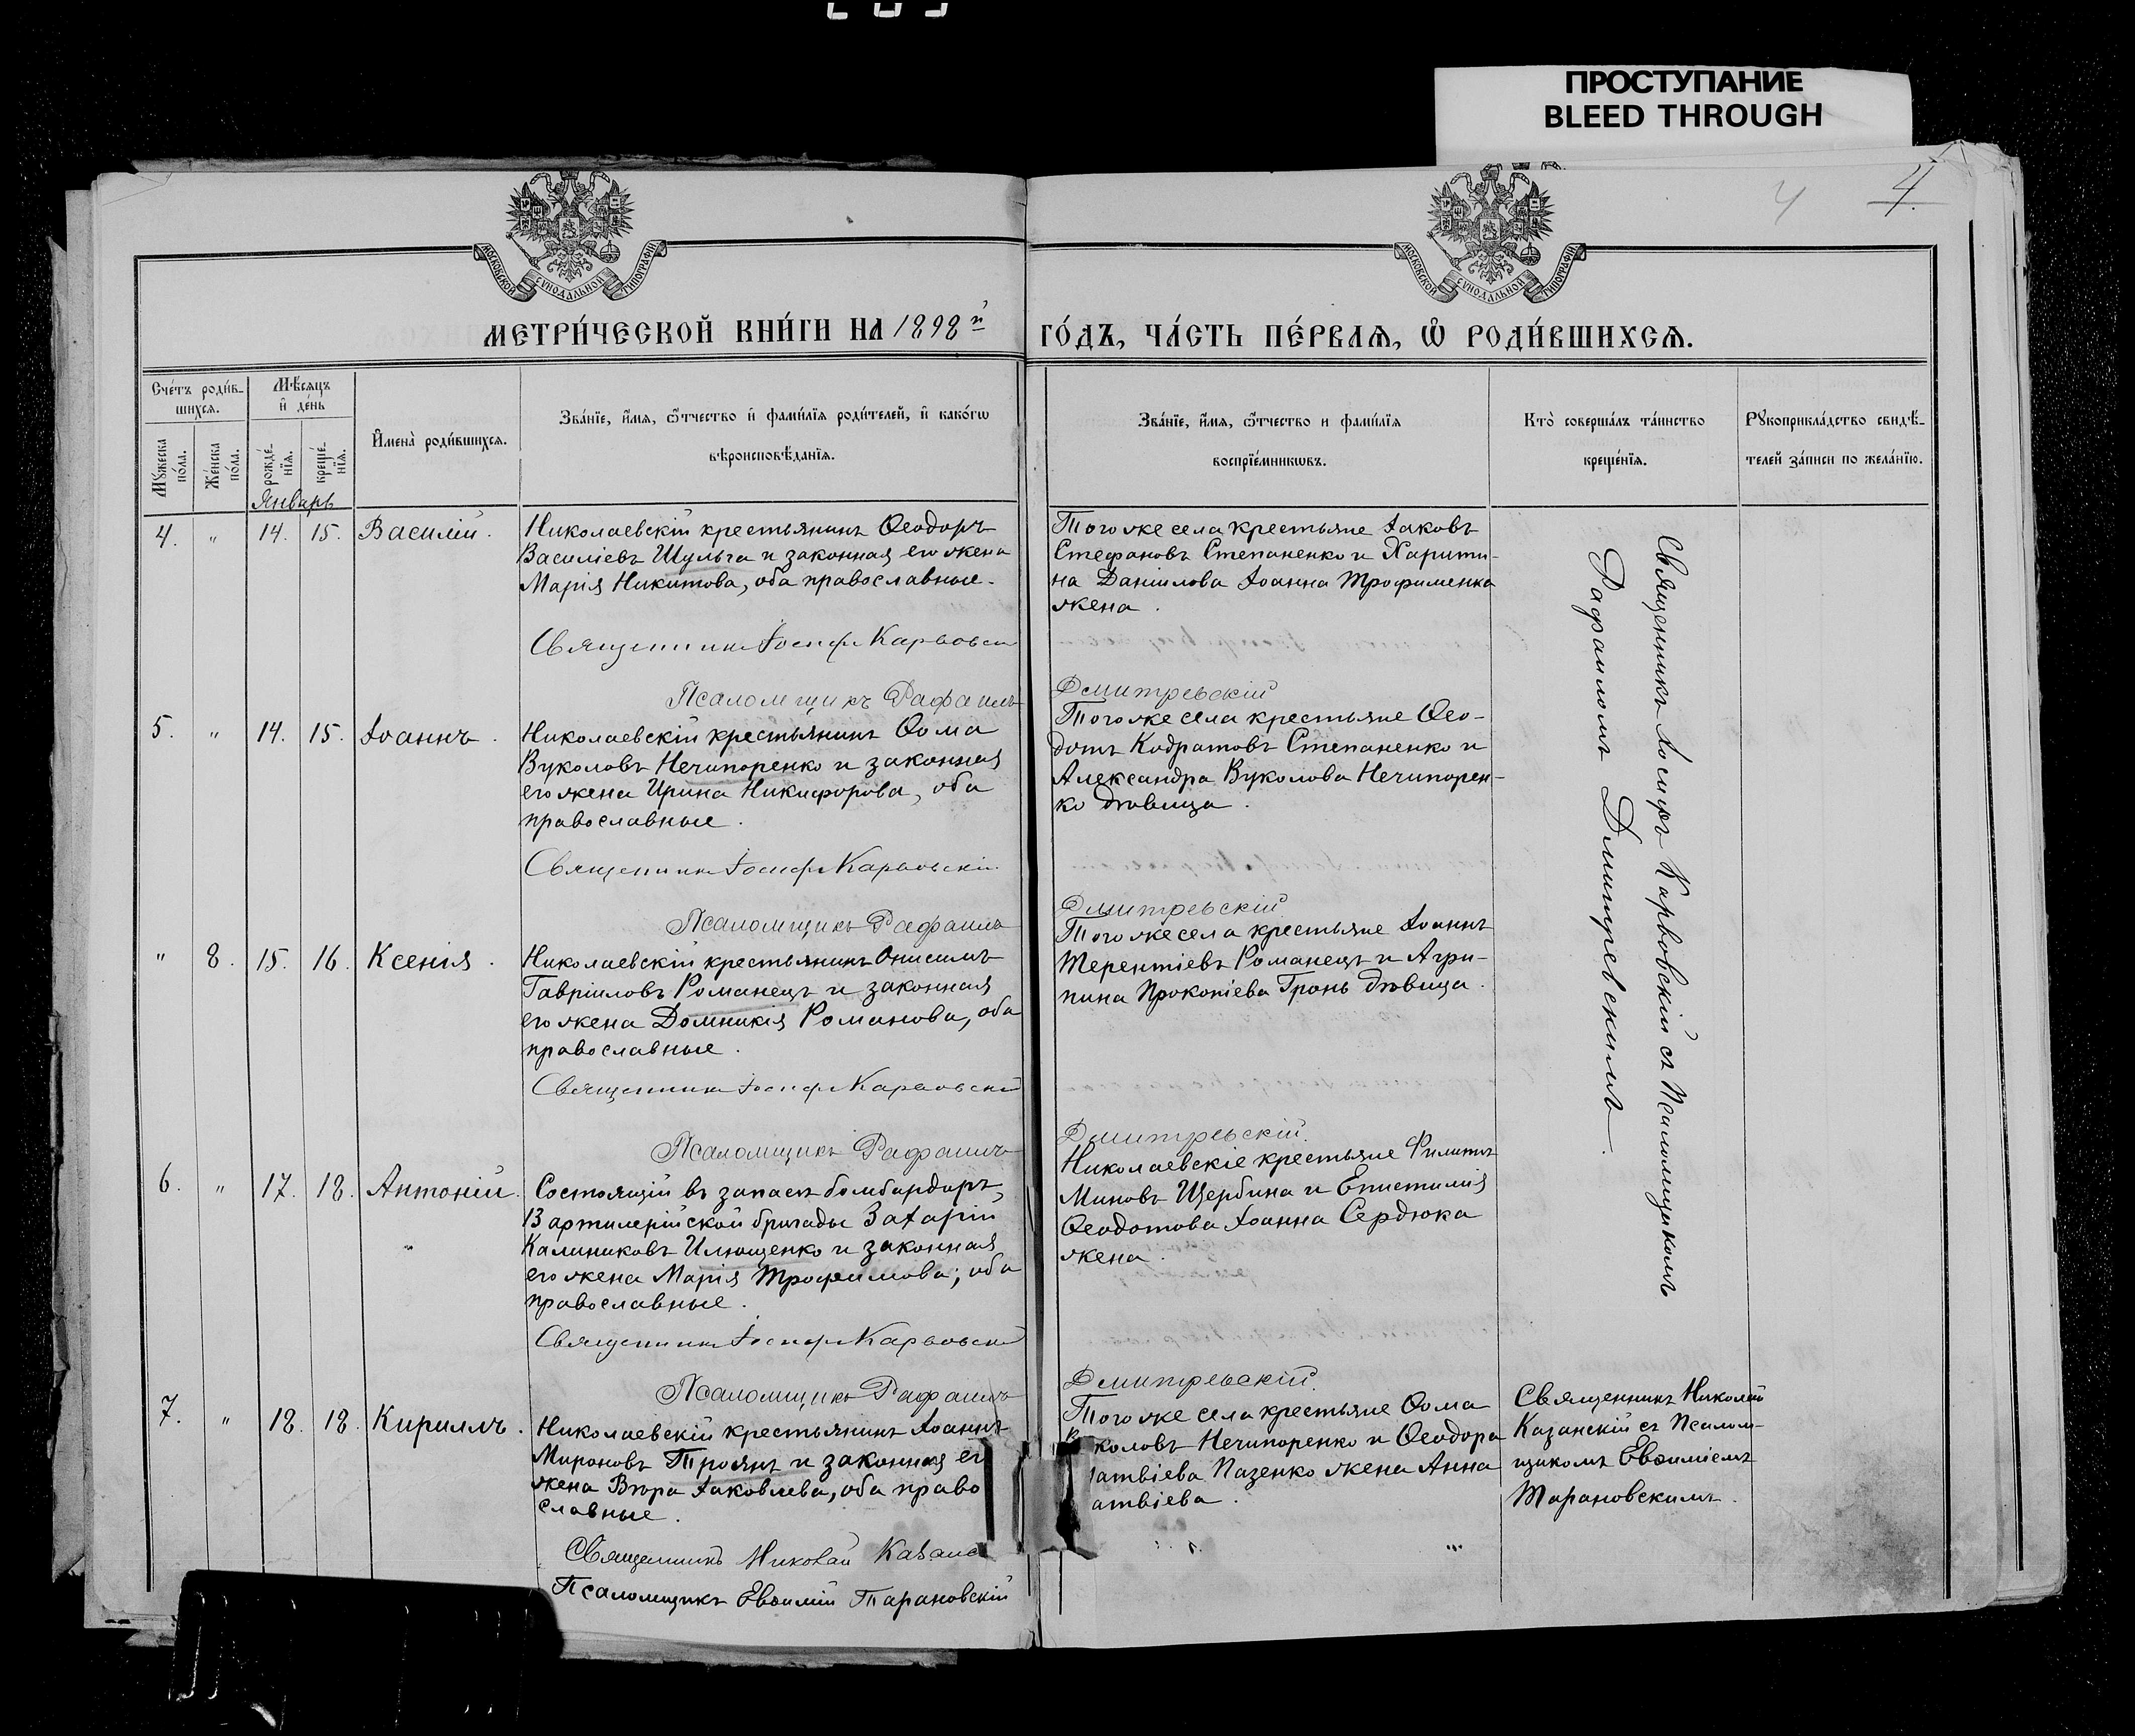 ПРОСТУПАНИЕ
BLEED THROUGH
4
4.
МОСКОВСКОЙ СѴНОДАЛЬНОЙ ТИПОГРАФІИ
МОСКОВСКОЙ СѴНОДАЛЬНОЙ ТИПОГРАФІИ
МЕТРИ́ЧЕСКОЙ КНИ́ГИ НА 1898й
ГО́ДЪ, ЧА́СТЬ ПЕ́РВАѦ, Ѽ РОДИ́ВШИХСѦ.
Сче́тъ роди́в-
шихсѧ.
Мѣ́сѧцъ
и҆ де́нь
Мꙋ́жеска
по́ла.
Же́нска
по́ла.
рожде́-
нїѧ.
креще́-
нїѧ.
И҆мена̀ роди́вшихсѧ.
Зва́нїе, и҆́мѧ, ѻ҆́тчество и҆ фами́лїѧ роди́телей, и҆ како́гѡ
вѣроисповѣ́данїѧ.
Зва́нїе, и҆́мѧ, ѻ҆́тчество и фами́лїѧ
воспрїе́мникѡвъ.
Кто̀ соверша́лъ та́инство
креще́нїѧ.
Рꙋкоприкла́дство свидѣ́-
телей за́писи по жела́нїю.
Январь
4. " 14. 15. Василій.
Николаевскій крестьянинъ Ѳеодоръ
Василіевъ Шульга и законная его жена
Марія Никитова, оба православные.
Священникъ Іосифъ Карвовскі
Псаломщикъ Рафаилъ
Того же села крестьяне Іаковъ
Стефановъ Степаненко и Харити-
на Даніилова Іоанна Трофименка
жена.
Дмитревскій
5. " 14. 15. Іоаннъ.
Николаевскій крестьянинъ Ѳома
Вуколовъ Нечипоренко и законная
его жена Ирина Никифорова, оба
православные.
Священникъ Іосифъ Карвовскій
Псаломщикъ Рафаилъ
Того же села крестьяне Ѳео-
дотъ Кодратовъ Степаненко и
Александра Вуколова Нечипорен-
ко дѣвица.
Дмитревскій
" 8. 15. 16. Ксенія.
Николаевскій крестьянинъ Онисимъ
Гавріиловъ Романецъ и законная
его жена Домникія Романова, оба
православные.
Священникъ Іосифъ Карвовскій
Псаломщикъ Рафаилъ
Того же села крестьяне Іоаннъ
Терентіевъ Романецъ и Агри-
пина Прокопіева Гронь дѣвица.
Дмитревскій.
6. " 17. 18. Антоній.
Состоящій въ запасѣ бомбардиръ,
13 артилерійской бригады Захарій
Калиниковъ Илющенко и законная
его жена Марія Трофимова; оба
православные.
Священникъ Іосифъ Карвовскій
Псаломщикъ Рафаилъ
Николаевскіе крестьяне Филипъ
Миновъ Щербина и Епистимія
Ѳеодотова Іоанна Сердюка
жена.
Дмитревскій.
Священникъ Іосифъ Карвовскій съ Псаломщикомъ
Рафаиломъ Дмитревскимъ.
7. " 18. 18. Кириллъ.
Николаевскій крестьянинъ Іоаннъ
Мироновъ Троянъ и законная ег
жена Вѣра Іаковлева, оба право
славные.
Священникъ Николай Казанс
Псаломщикъ Евѳимій Тарановскій
Того же села крестьяне Ѳома
колово Нечипоренко и Ѳеодора
атвіева Пазенко жена Анна
атвіева.
Священникъ Николай
Казанскій съ Псалом-
щикомъ Евѳиміемъ
Тарановскимъ.